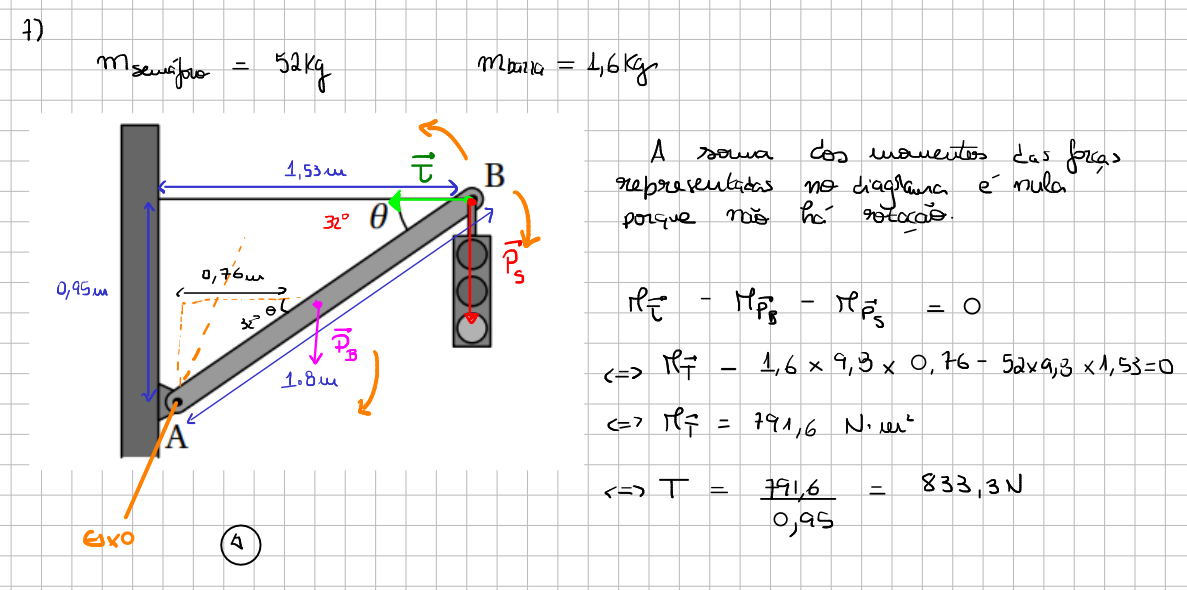 7)
m semáforo = 52 Kg
m barra = 1,6 Kg
1,53 m
τ⃗
B
32°
θ
P⃗s
0,76 m
0,95 m
32° θ
P⃗B
1.8 m
A
Eixo
A
A soma dos momentos das forças
representadas no diagrama é nula
porque não há rotação.
M τ⃗ - M P⃗B - M P⃗s = 0
<=> M T⃗ - 1,6 × 9,8 × 0,76 - 52×9,8 × 1,53=0
<=> M T⃗ = 791,6 N.m²
<=> T = 791,6 / 0,95 = 833,3 N